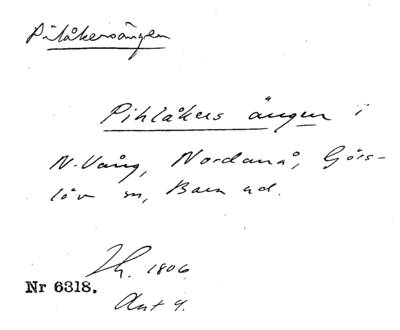 Pilåkersängen
Pihlåkers ängen i
N. Vång, Nordanå, Görs-
löv sn, Bara hd.
Lh. 1806
Nr 6318.
Akt 4.